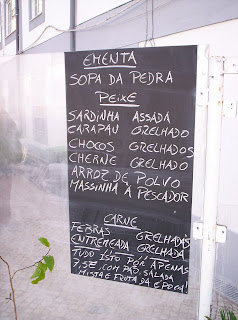 EMENTA
SOPA DA PEDRA
PEIXE
SARDINHA ASSADA
CARAPAU GRELHADO
CHOCOS GRELHADOS
CHERNE GRELHADO
ARROZ DE POLVO
MASSINHA À PESCADOR
CARNE
FEBRAS GRELHADAS
ENTREMEADA GRELHADA
TUDO ISTO POR APENAS
7,5€ COM PÃO, SALADA
MISTA E FRUTA DA ÉPOCA!